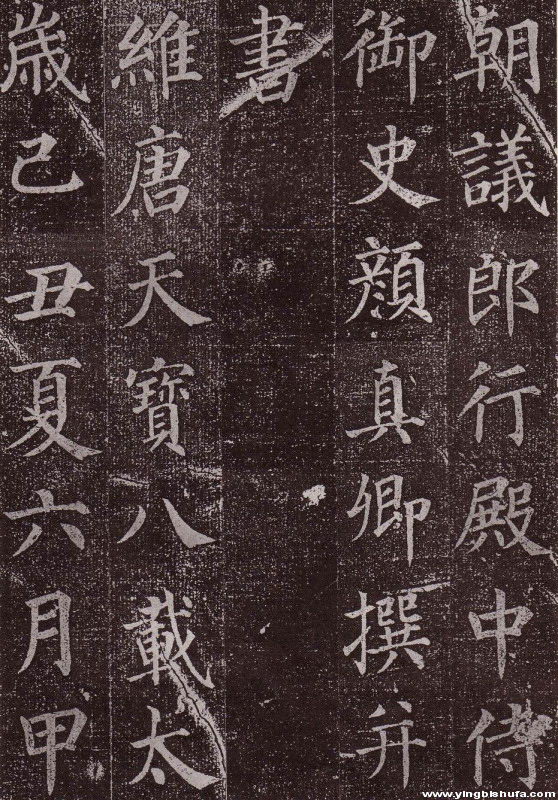 朝議郎行殿中侍
御史顏真卿撰并
書
維唐天寶八載太
歳己丑夏六月甲
www.yingbishufa.com